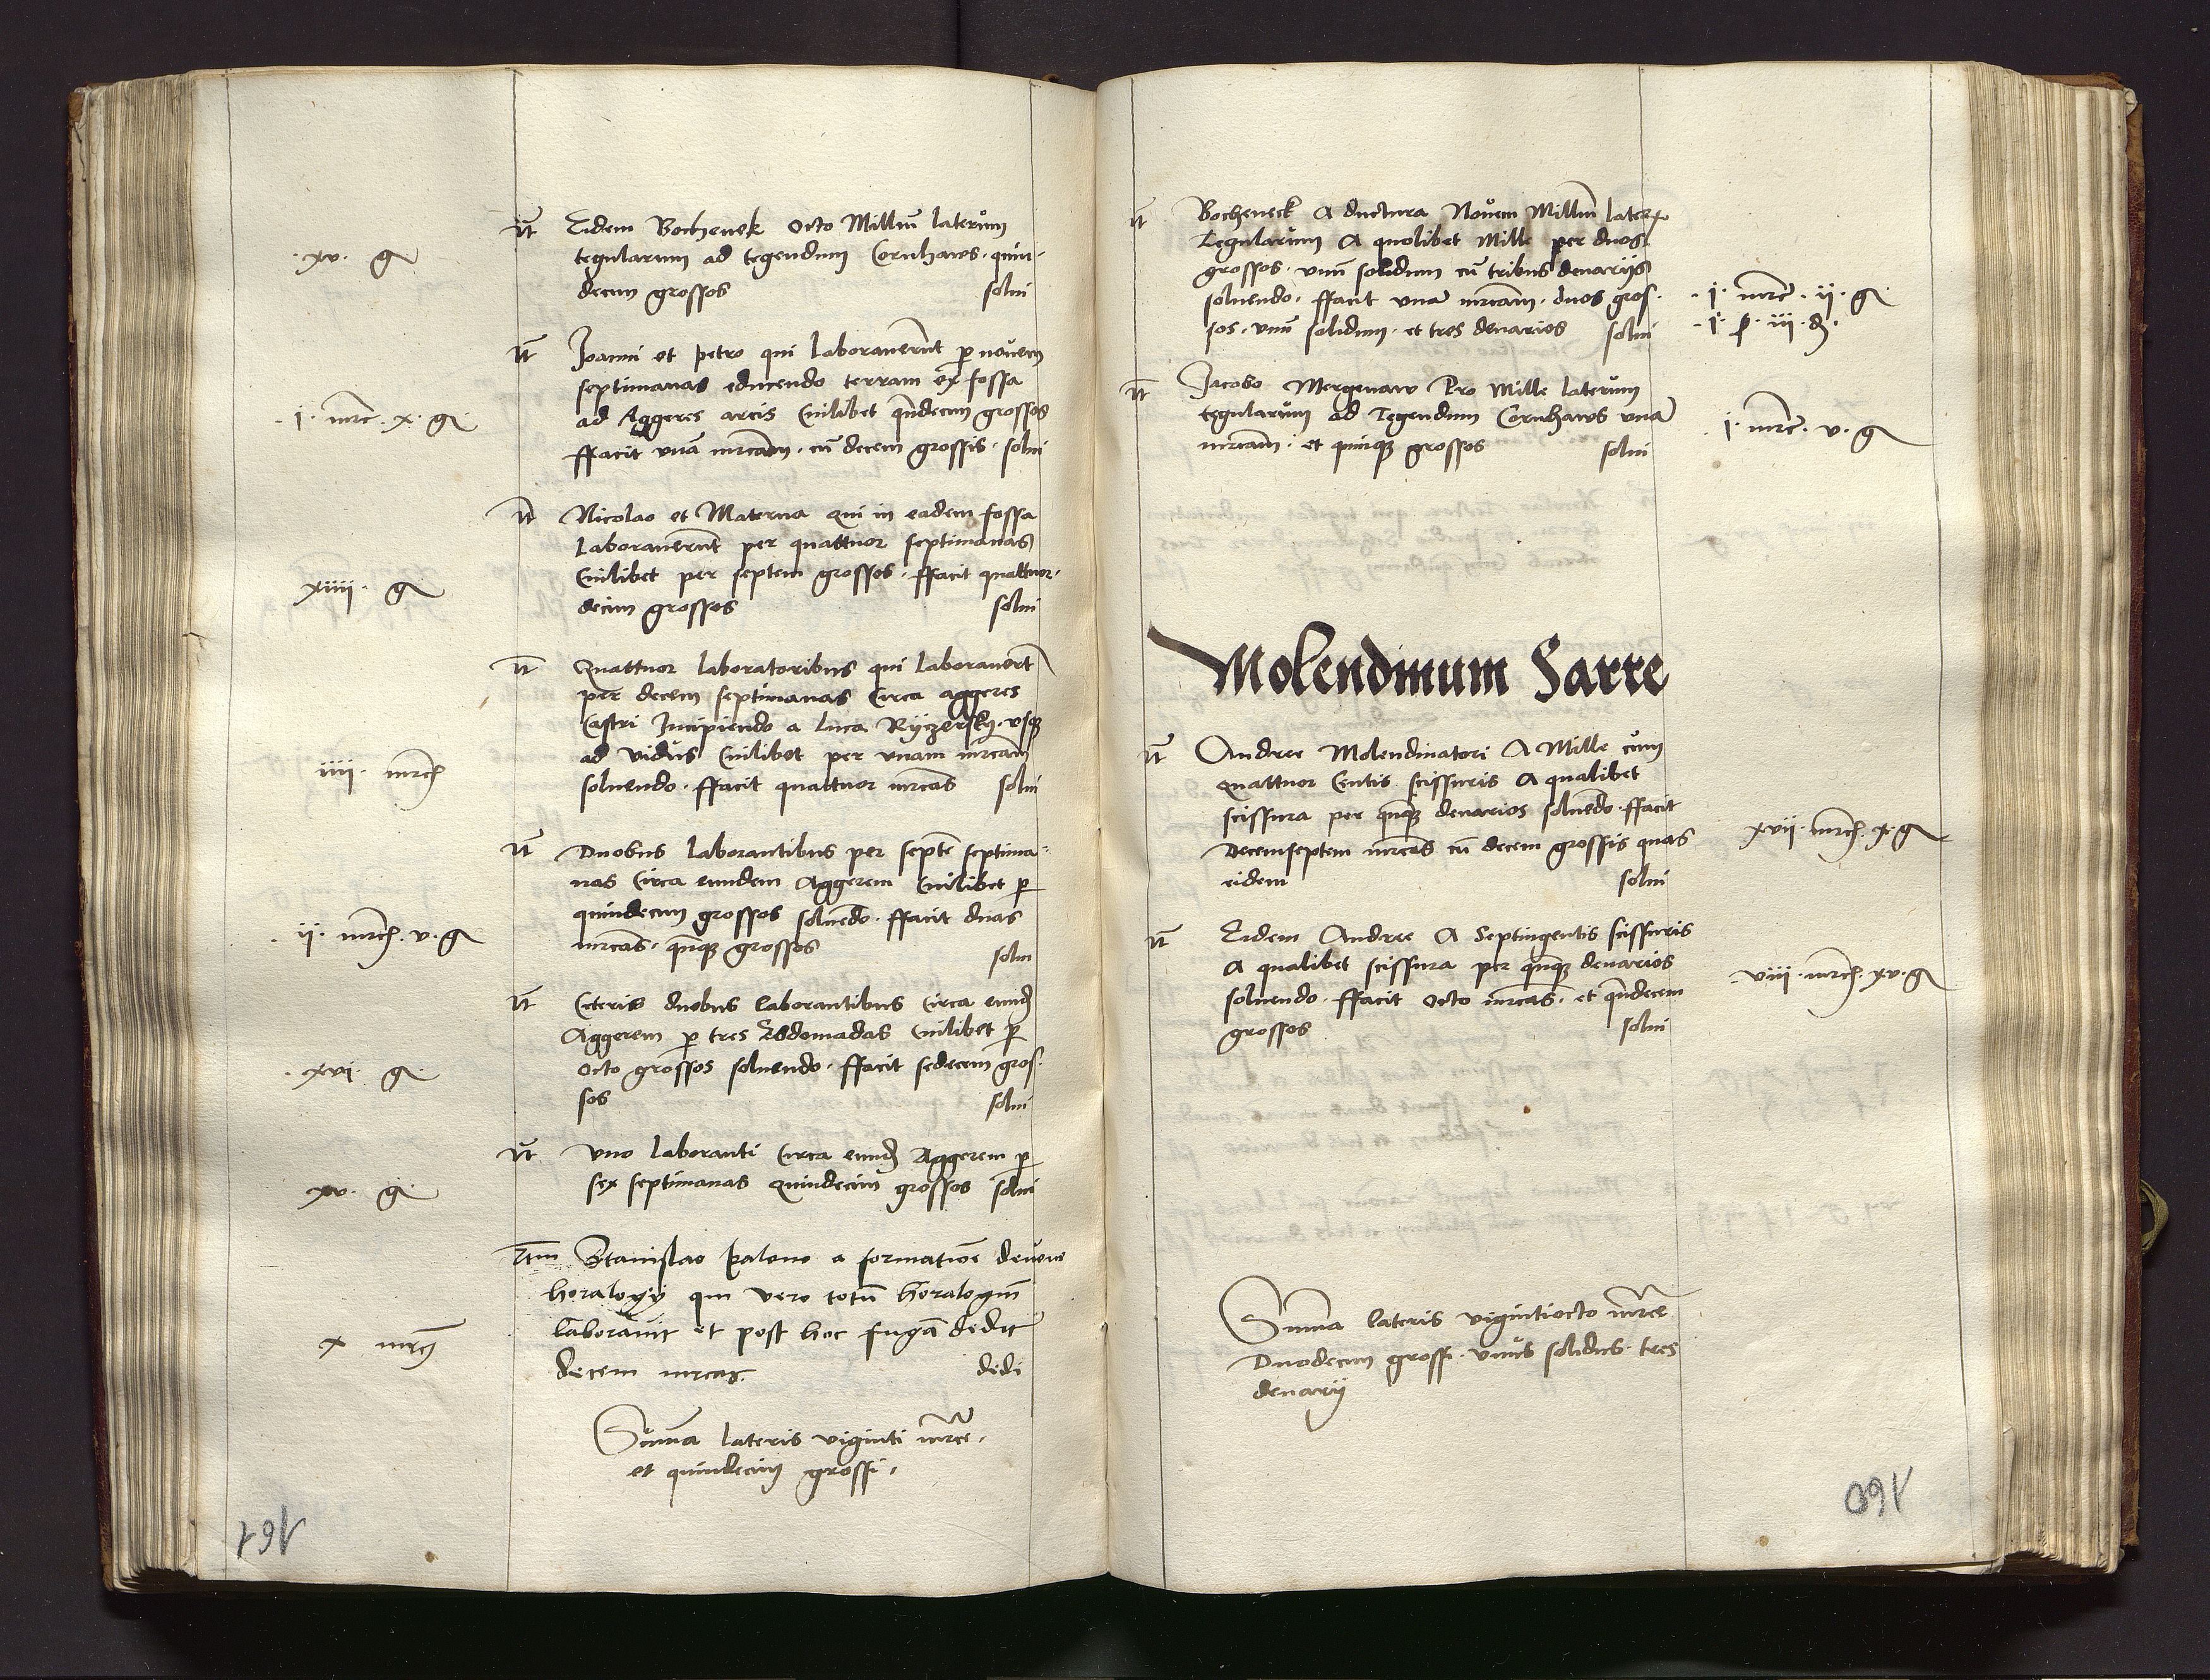 ·xv· g
it Eidem Bochenek octo Milliu laterum
tegularum ad tegendum Cornhaws· quin·
decim grossos solui
it Joanni et petro qui laborauerunt p nouem
septimanas educendo terram ex fossa
·i· mrc· x· g· ad Aggeres arcis Cuilibet qndecim grossos
ffacit vna mrcam· cu decem grossis· solui
it Nicolao et Materna Qui in eadem fossa
laborauerunt per quattuor septimanas
xiiii· g Cuilibet per septem grossos· ffacit quattuor·
decim grossos solui
it Quattuor laboratoribus qui laborauert
per decem septimanas Circa aggeres
Castri Incipiendo a luca Ryczersky· vsq
iiii· mrch ad vidus Cuilibet per vnam mrcam
soluendo· ffacit quattuor mrcas solui
it Duobus laborantibus per septe septima-
nas Circa eundem Aggerem Cuilibet p
quindecim grossos soluedo· ffacit duas
·ii· mrch· v· g mrcas· qnqz grossos solui
it Ceteris duobus laborantibus Circa eund
Aggerem p tres Ebdomadas Cuilibet p
·xvi· g· octo grossos soluendo· ffacit sedecem gros·
sos solui
it Vno laboranti Circa eund Aggerem p
xv· g· sex septimanas Quindecim grossos solui
Itm Stanislao palono a formatione
horalogy qui vero totu horalogiu
laborauit et post hoc fuga dedit
x mrcs decem mrcas. dedi
Suma lateris viginti mrce·
et quindecim grossi·
161
it Bocheneck A ductura Nouem Milliu later
Tegularum A quolibet Mille per duos
grossos· vnu solidum cu tribus denarijs
soluendo· ffacit vna mrcam· duos gros· ·i· mrc· ii· g
sos· vnu solidum· et tres denarios solui ·i· s· iii· d·
it Jacobo Mergenaw Pro Mille laterum
tegularum ad Tegendum Cornhaws vna
mrcam· et quinqz grossos solui i· mrc· v· g
Molendinum Sarre
it Andree Molendinatori A Mille cum
quattuor Centis scissuris A qualibet
scissura per qnqz denarios soluedo· ffacit
Decemseptem mrcas cu decem grossis quas xvii· mrch· x· g
eidem solui
it Eidem Andree A Septingentis scissuris
A qualibet scissura per qnqz denarios
soluendo· ffacit octo mrcas· et qndecem ·viii· mrch· xv· g
grossos solui
Suma lateris vigintiocto mrce
Duodecim grossi· vnus solidus· tres
denarij
160